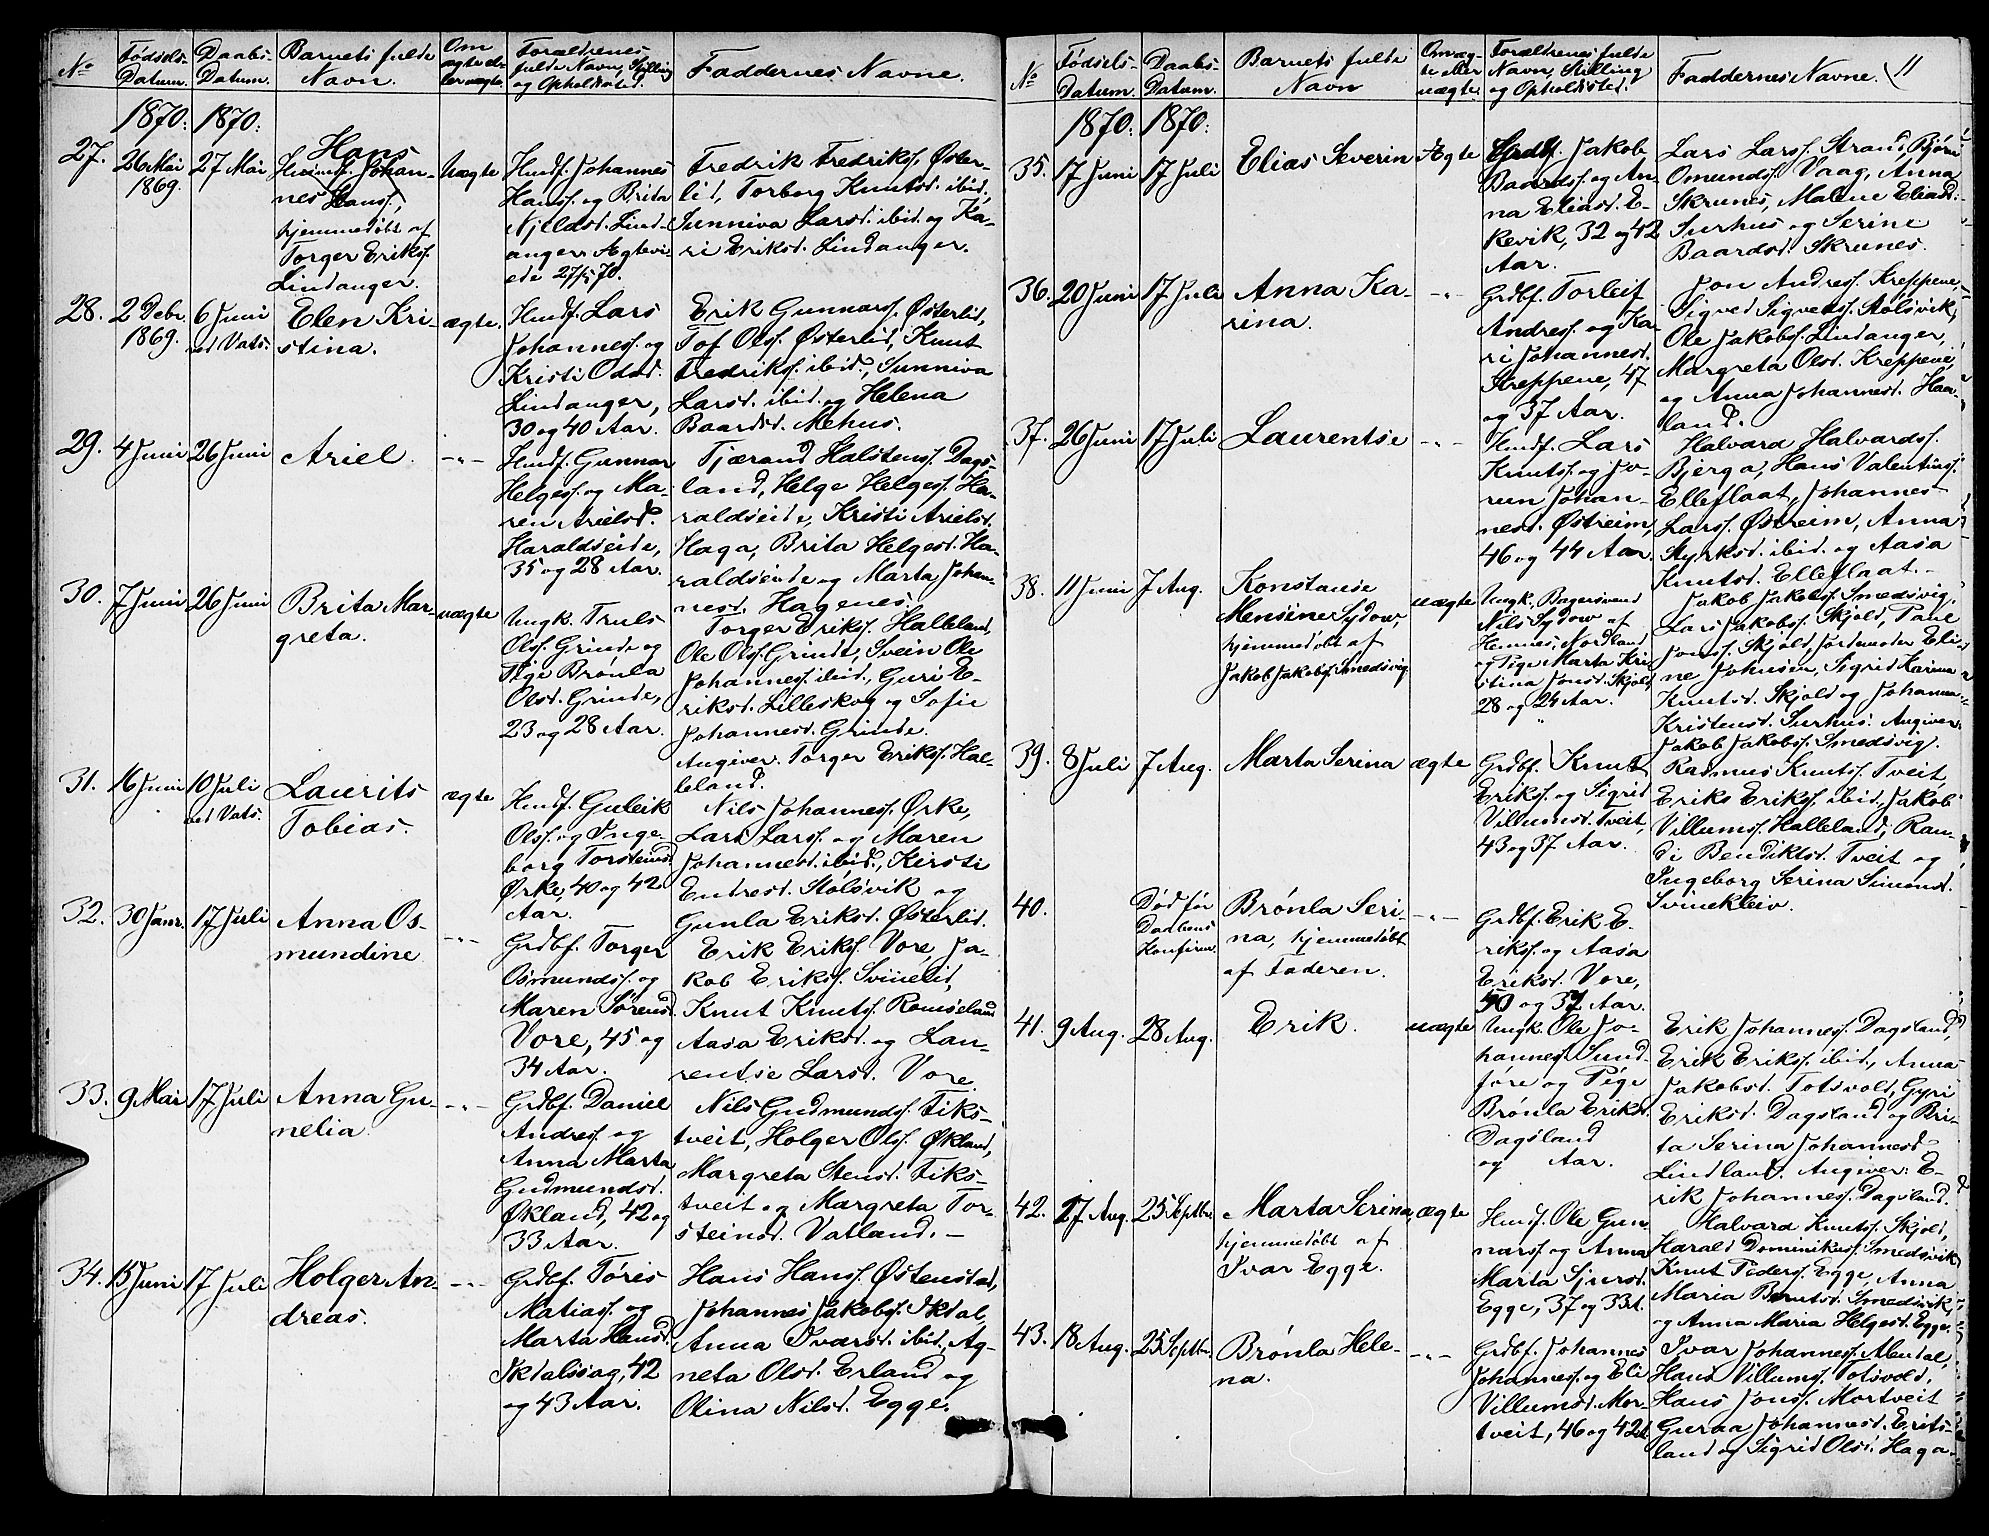 No
Fødsels-
Datum.
Daabs-
Datum.
Barnets fulde
Navn.
Om
ægte el-
ler uægte.
Forældrenes
fulde Navn, Stilling
og Opholdssted.
Faddernes Navne.
1870: 1870:
27.
26 Mai
1869.
27 Mai
Hans
Johan-
nes Hanss.,
hjemmedøbt af
Torger Eriks.
Lindanger.
Uægte
Husmf. Johannes
Hanss. og Brita
Njeldsd. Lind-
anger. Ægtevi-
ede 27/5 70.
Fredrik Fredrikss. Øster-
lid, Torborg Knutsd. ibid,
Sunniva Larsd. ibid. og Ka-
ri Eriksd. Lindanger.
28.
2 Debr.
1869.
6 Juni
ved Vats.
Elen Kri-
stina.
ægte.
Husmf. Lars
Johanness. og
Kristi Oddsd.
Lindanger,
30 og 40 Aar.
Erik Gunnarss. Østerlid,
Tof Olss. Østerlid, Knut
Fredrikss. ibid., Sunniva
Larsd. ibid. og Helena
Baardsd. Mehus.
29.
4 Juni
26 Juni
Ariel.
-„-
Husmf. Gunnar
Helgess. og Ma-
ren Arielsd.
Haraldseide,
35 og 28 Aar.
Tjærand Halstenss. Dags-
land, Helge Helgess. Ha-
raldseide, Kristi Arielsd.
Haga, Brita Helgesd. Ha-
raldseide og Marta Johan-
nesd. Hagenes.
30.
7 Juni
26 Juni
Brita Mar-
greta.
uægte
Ungk. Truls
Olss. Grinde og
Pige Brønla
Olsd. Grinde,
23 og 28 Aar.
Torger Erikss. Halleland,
Ole Olss. Grinde, Svein Ole
Johanness. ibid., Guri E-
riksd. Lilleskog og Sofie
Johannesd. Grinde.
Angiver: Torger Erikss. Hal-
leland.
31.
16 Juni
10 Juli
ved Vats.
Laurits
Tobias.
ægte
Husmf. Guleik
Olss. og Inge-
borg Torsteinsd.
Ørke, 40 og 42
Aar.
Nils Johanness. Ørke,
Lars Larss. og Maren
Johannesd. ibid., Kirsti
Endresd. Stølsvik og
Gunla Eriksd. Østerlid.
32.
30 Janr.
17 Juli
Anna Os-
mundine
-„-
Grdbf. Torger
Osmundss. og
Maren Sørensd.
Vore, 45 og
34 Aar.
Erik Erikss. Vore, Ja-
kob Erikss. Svinelid,
Knut Knutss. Romseland
Aasa Eriksd. og Lau-
rentse Larsd. Vore.
33.
9 Mai
17 Juli
Anna Gu-
nelia.
-„-
Grdbf. Daniel
Andress. og
Anna Marta
Gudmundsd.
Økland, 42 og
33 Aar.
Nils Gudmundss. Fiks-
tveit, Holger Olss. Økland,
Margreta Stensd. Fiks-
tveit og Margreta Tor-
steinsd. Vatland. -
34.
15 Juni
17 Juli
Holger An-
dreas.
-„-
Grdbf. Tøres
Matiass. og
Marta Hansd.
Skdalssag, 42
og 43 Aar.
Hans Hanss. Østenstad,
Johannes Jakobss. Skdal,
Anna Ivarsd. ibid., Ag-
neta Olsd. Erland og
Olina Nilsd. Egge.
No
Fødsels-
Datum.
Daabs-
Datum.
Barnets fulde
Navn
Om æg-
te eller
uægte.
Forældrenes fulde
Navn, Stilling
og Opholdssted.
Faddernes Navne.
11
1870: 1870:
35.
17 Juni
17 Juli
Elias Severin
Ægte
Grdbf. Jakob
Baardss. og An-
na Eliasd. E-
kevik, 32 og 42
Aar.
Lars Larss. Strand, Bjørn
Omundss. Vaag, Anna
Skrunes, Malene Eliasd.
Surhus og Serine
Baardsd. Skrunes.
36.
20 Juni
17 Juli
Anna Ka-
rina.
-„-
Grdbf. Torleif
Andress. og Ka-
ri Johannesd.
Kreppene, 47
og 37 Aar.
Jon Andress. Kreppene,
Sigved Sigvedss. Stølsvik,
Ole Jakobss. Lindanger,
Margreta Olsd. Kreppene,
og Anna Johannesd. Haa-
land.
37.
26 Juni
17 Juli
Laurentse
-„-
Husmf. Lars
Knutss. og Jo-
run Johan-
nesd. Østreim,
46 og 44 Aar.
Halvard Halvardss.
Bjerga, Hans Valentinss.
Elleflaat, Johannes
Larss. Østreim, Anna
Styrksd. ibid. og Aasa
Knutsd. Elleflaat. -
38.
11 Juni
7 Aug.
Konstanse
Mensine Sydow,
hjemmedøbt af
Jakob Jakobss. Smedsvig.
uægte
Ungk. Bagersvend
Nils Sydow af
Hemnes, Nordland
og Pige Marta Kri-
stina Jonsd. Skjold,
28 og 24 Aar.
Jakob Jakobss. Smedsvig,
Lars Jakobss. Skjold, Paul
Jonss. Skjold, Jordmoder Eli-
ne Johnsen, Sigrid Karina
Knutsd. Skjold og Johanna
Kristensd. Surhus. Angiver:
Jakob Jakobss. Smedsvig.
39.
8 Juli
7 Aug.
Marta Serina
ægte
Grdbf. Knut
Erikss. og Sigrid
Villumsd. Tveit,
43 og 37 Aar.
Rasmus Knutss. Tveit,
Eriks Erikss. ibid., Jakob
Villumss. Halleland, Ran-
di Bendiktsd. Tveit og
Ingeborg Serina Simonsd.
Svinekleiv.
40.
Død før
Daabens
Konfirm.
Brønla Seri-
na, hjemmedøbt
af Faderen.
-„-
Grdbf. Erik E-
rikss. og Aasa
Eriksd. Vore,
50 og 37 Aar.
41.
9 Aug.
28 Aug.
Erik.
uægte
Ungk. Ole Jo-
hanness. Sund-
føre og Pige
Brønla Eriksd.
Dagsland
og Aar.
Erik Johanness. Dagsland,
Erik Erikss. ibid., Anna
Jakobsd. Totsvold, Gyri
Eriksd. Dagsland og Bri-
ta Serina Johannesd.
Lindland. Angiver: E-
rik Johanness. Dagsland.
42.
27 Aug.
25 Septbr.
Marta Serina,
hjemmedøbt af
Ivar Egge.
ægte
Husmf. Ole Gun-
narss. og Anna
Marta Sjursd.
Egge, 37 og 33 A.
Halvard Knutss. Skjold,
Harald Dominikuss. Smedsvik
Knut Pederss. Egge, Anna
Maria Berntsd. Smedsvik,
og Anna Maria Helgesd. Egge.
43.
18 Aug.
25 Septbr.
Brønla Hele-
na.
-„-
Grdbf. Johannes
Johanness. og Eli
Villumsd. Mor-
tveit, 46 og 42 A.
Ivar Johanness. Alendal,
Hans Villumss. Totsvold,
Hans Jonss. Mortveit
Guraa Johannesd. Erits-
land og Sigrid Olsd. Haga.